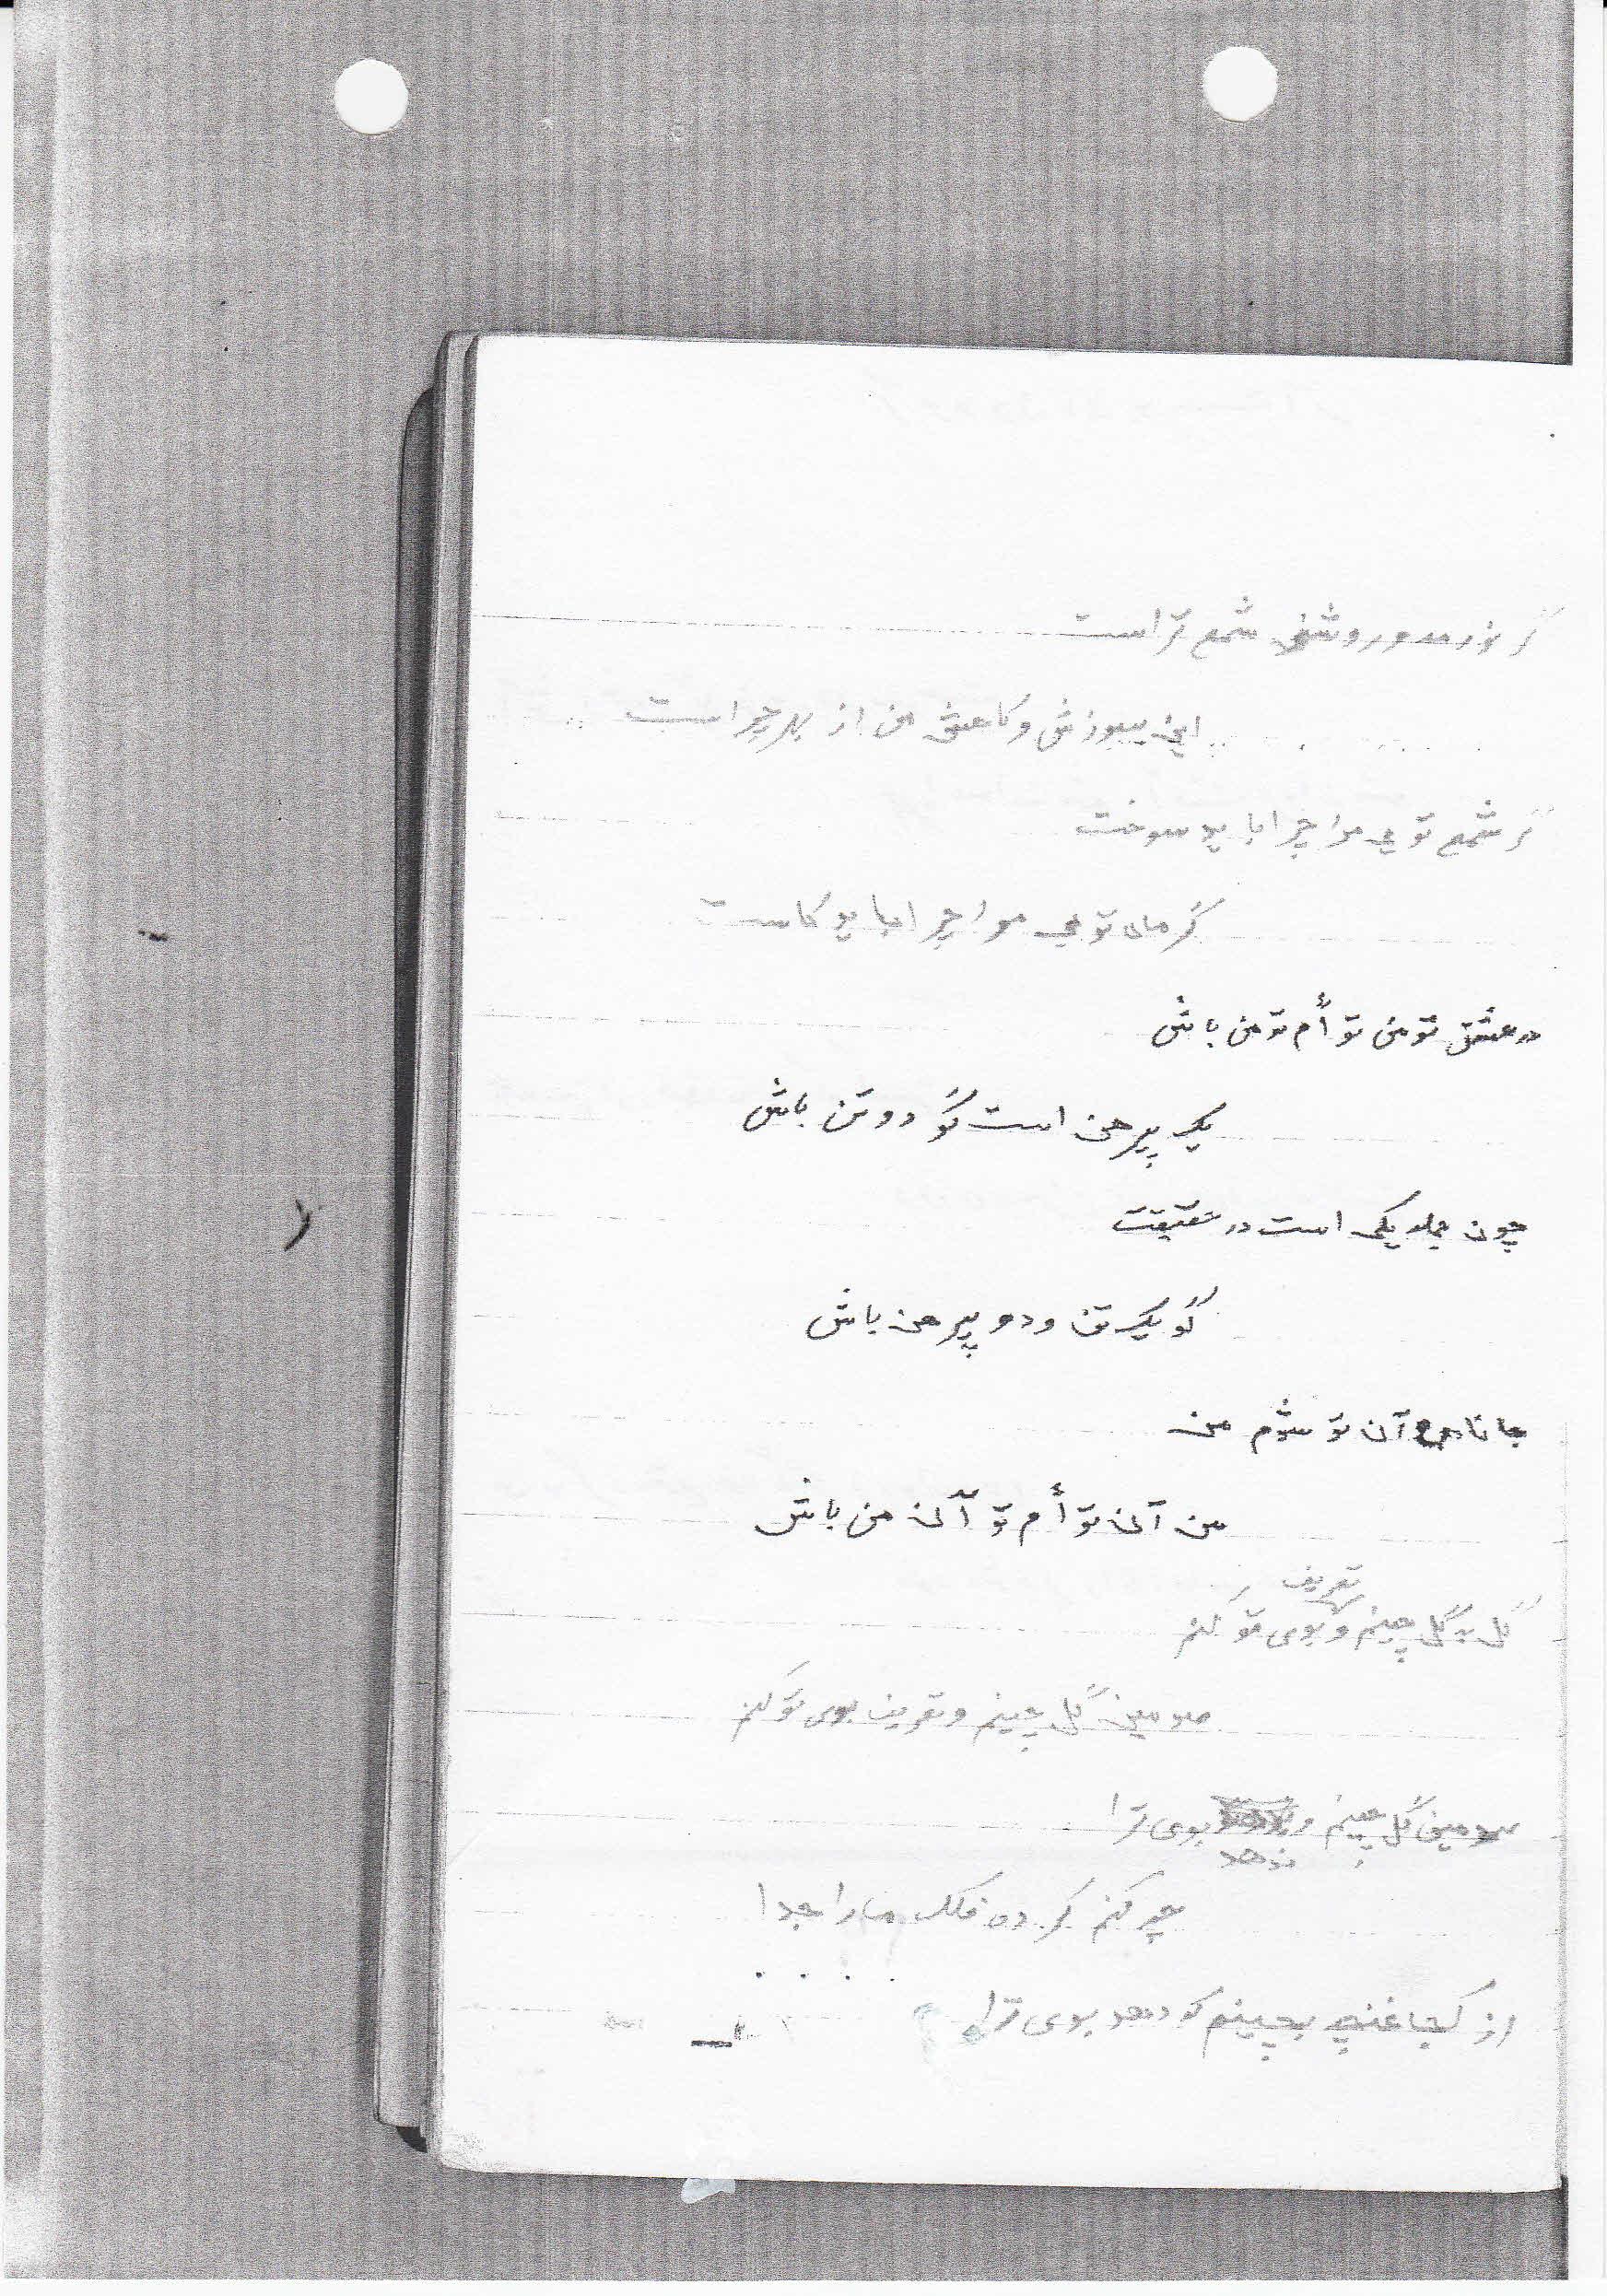 گر نور مه و روشنی شمع تراست
این سوزش و کاهش من از بهر چراست
گر شمع تویی مرا چرا باید سوخت
گر ماه تویی مرا چرا باید کاست
در عشق تو من توأم تو من باش
یک پیرهن است گو دو تن باش
چون جمله یکی است در حقیقت
گو یک تن و دو پیرهن باش
جانا آن تو شوم من
من آن توأم تو آن من باش
تعریف
گل به گل چینم و بوی تو کنم
صد مین گل چینم و تعریف بوی تو کنم
صد مین گل چینم و بوی ترا
ندهد
چه کنم کرده فلک ما را جدا
از کجا غنچه بچینم که دهد بوی ترا